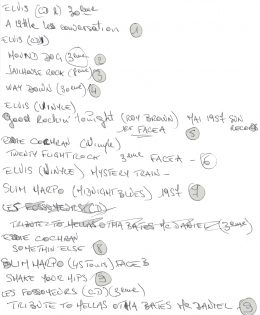 ELVIS (CD 2) 30ème
A little less conversation 1
ELVIS (CD)
HOUND DOG (3ème) 2
JAILHOUSE ROCK (8ème) 3
WAY DOWN (30ème) 4
ELVIS (VINYLE)
Good Rockin' tonight (ROY BROWN) MAI 1957 SUN RECORDS
1ER FACE A 5
EDDIE COCHRAN (Vinyle)
TWENTY FLIGHT ROCK 3ème FACE A - 6
ELVIS (VINYLE) MYSTERY TRAIN -
SLIM HARPO (MIDNIGHT BLUES) 1957 7
LES FOSSOYEURS (CD)
TRIBUTE TO HELLAS OTHA BATES Mc DANIEL (3ème)
EDDIE COCHRAN
SOMETHIN ELSE 8
SLIM HARPO (45 TOURS) FACE B
SHAKE YOUR HIPS 9
LES FOSSOYEURS (CD) (3ème)
TRIBUTE TO HELLAS OTHA BATES Mc DANIEL. 9